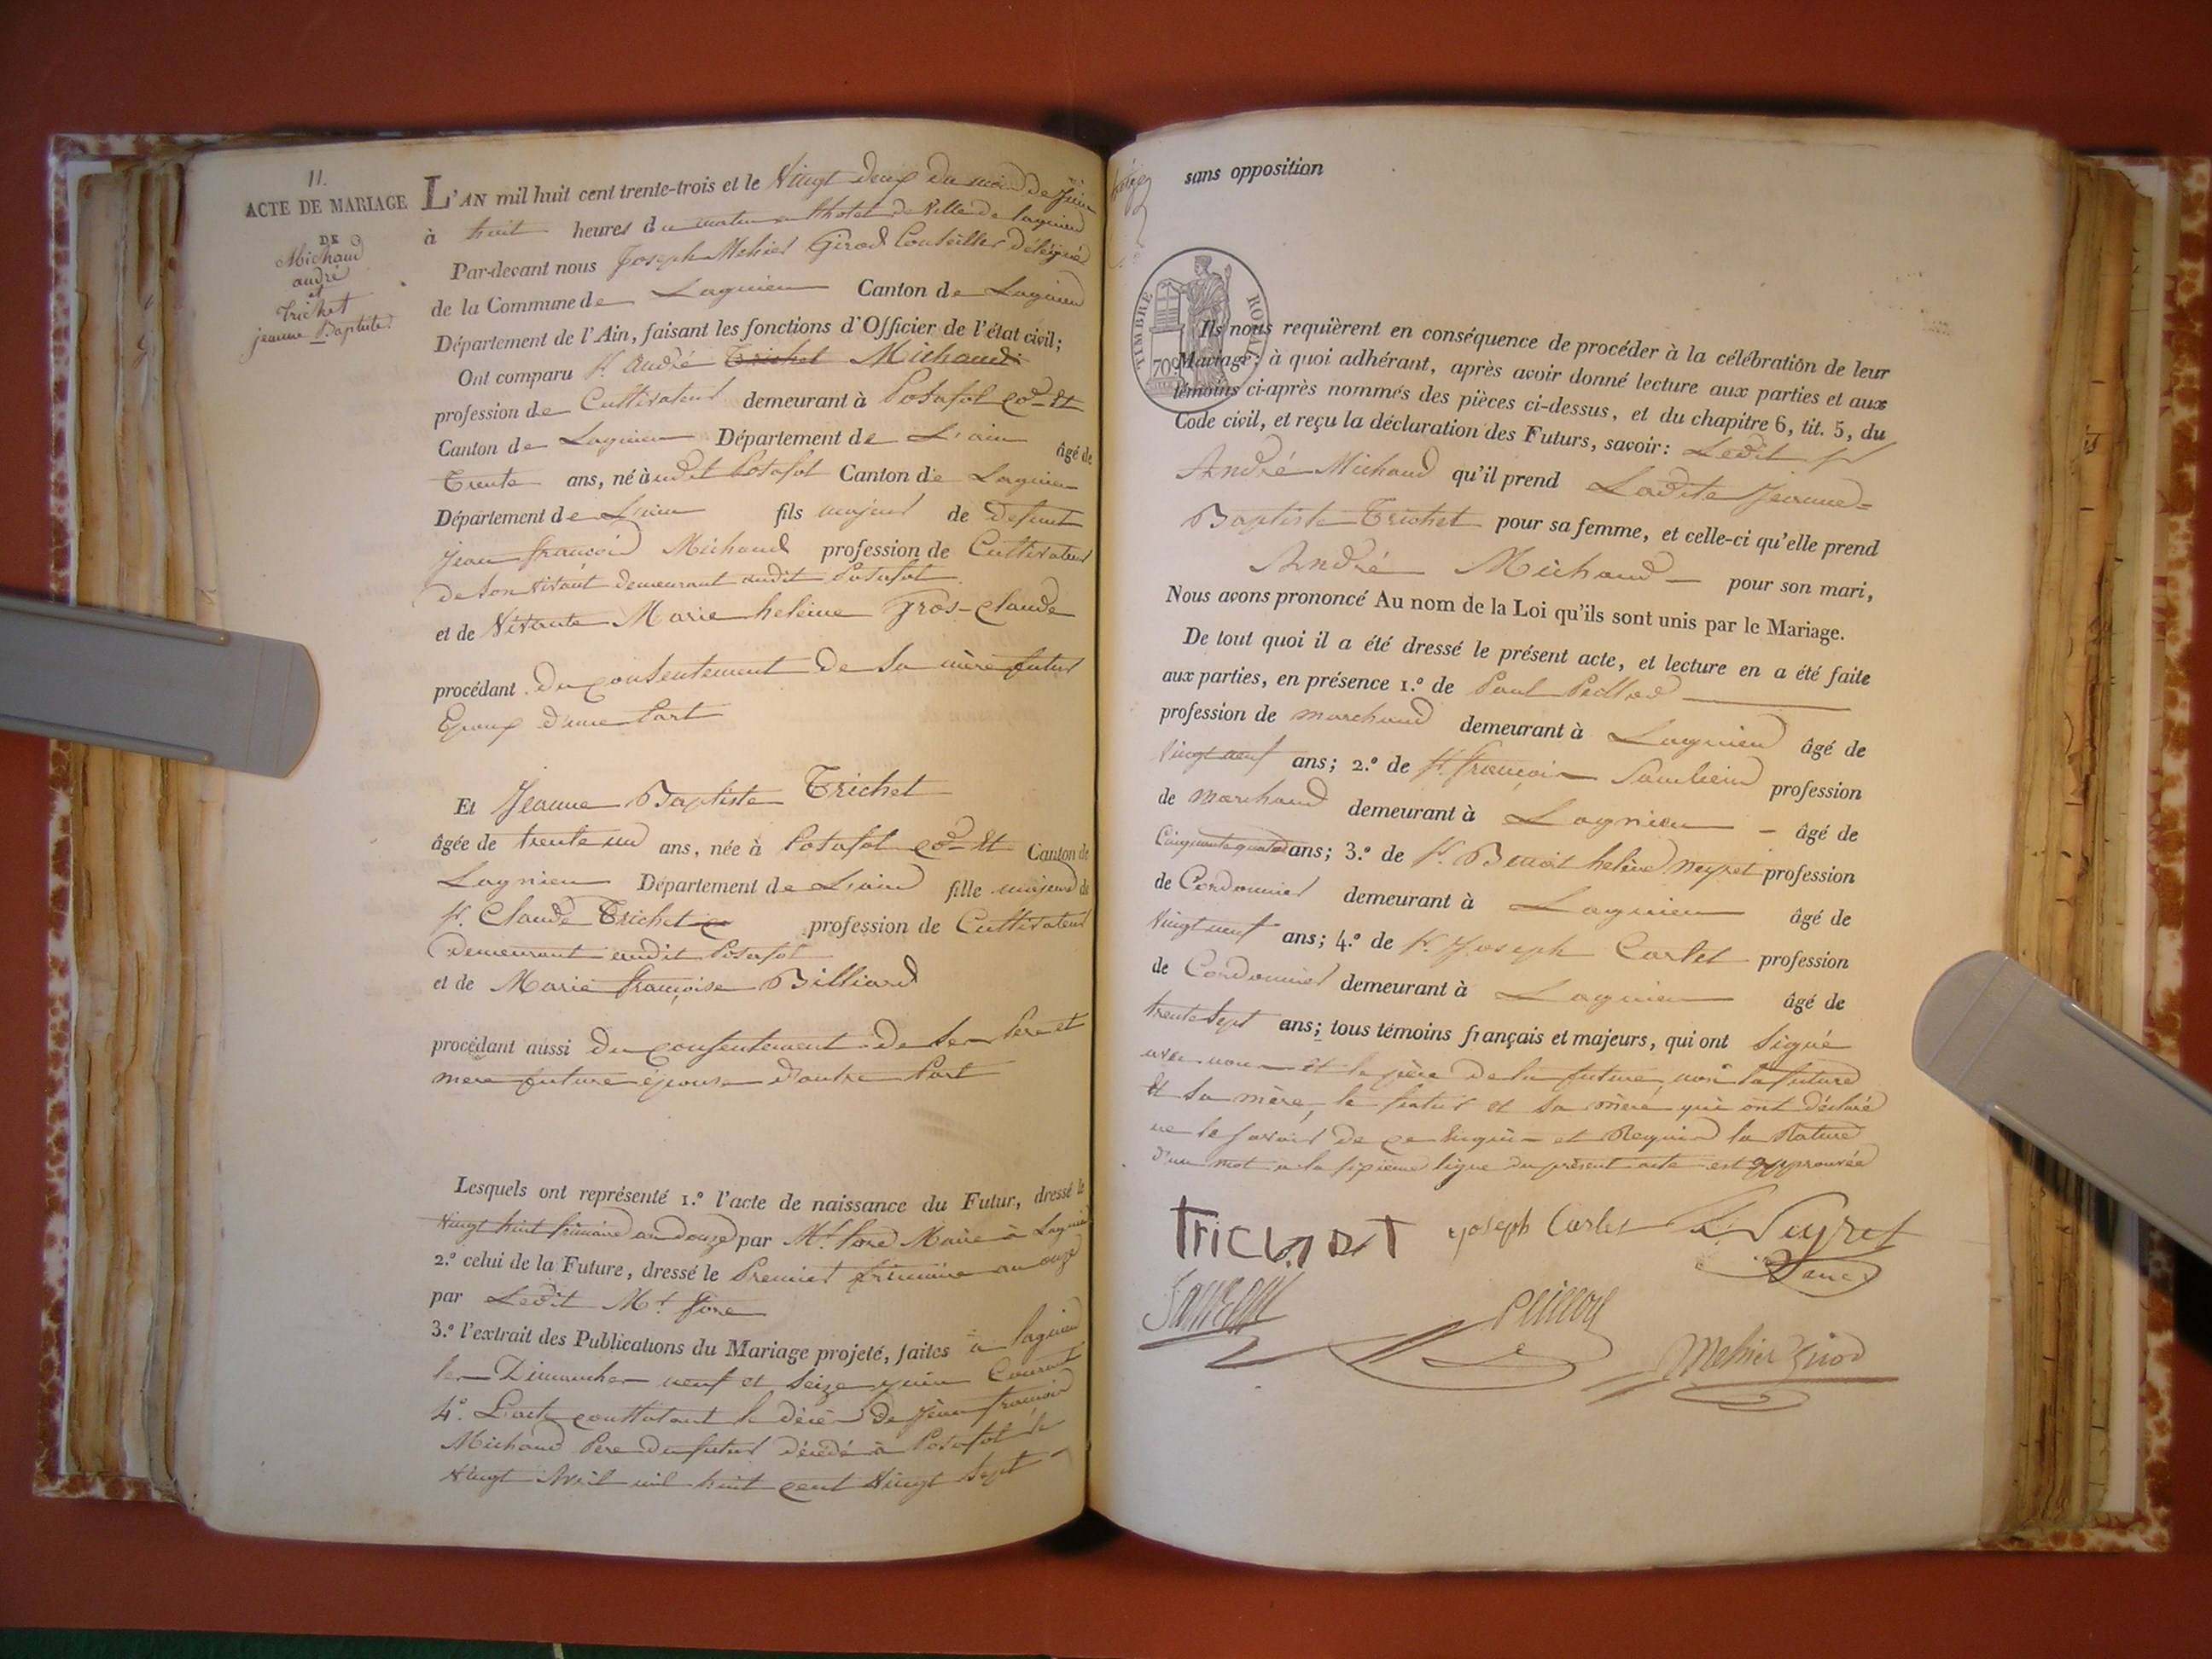 11.
ACTE DE MARIAGE
DE
Michaud
andré
et
Trichet
jeanne Baptiste
L'AN mil huit cent trente-trois et le Vingt deux du mois de Juin
à huit heures du matin a lhotel de Ville de lagnieu
Par-devant nous Joseph Mehier Girod Conseiller délégué
de la Commune de Lagnieu Canton de Lagnieu
Département de l'Ain, faisant les fonctions d'Officier de l'état civil;
Ont comparu Sr. André Trichet Michaud
profession de Cultivateur demeurant à Posafol
Canton de Lagnieu Département de L'ain âgé de
Trente ans, né à udit Posafol Canton de Lagnieu
Département de L'ain fils majeur de Defunt
Jean françois Michaud profession de Cultivateur
de Son vivant demeurant audit Posafol
et de Vivante Marie heleine Gros-Claude
procédant du Consentement de Sa mère futur
Epoux d'une Part
Et Jeanne Baptiste Trichet
âgée de trente un ans, née à Posafol Canton de
Lagnieu Département de L'ain fille majeure de
Sr. Claude Trichet profession de Cultivateur
demeurant audit Posafol
et de Marie françoise Billiard
procédant aussi du Consentement de Ses Pere et
mere future épouse d'autre Part
Lesquels ont représenté 1.º l'acte de naissance du Futur, dressé le
Vingt huit frimaire an douze par Mr. fore Maire à Lagnieu
2.º celui de la Future, dressé le Premier frimaire an onze
par Ledit Mr. fore
3.º l'extrait des Publications du Mariage projeté, faites à lagnieu
les Dimanches neuf et Seize juin Courant
4.º L'acte constatant le décès de Jean françois
Michaud Pere du futur décédé à Posafol le
Vingt Avril mil huit cent Vingt Sept
sans opposition
TIMBRE ROYAL
709
Ils nous requièrent en conséquence de procéder à la célébration de leur
Mariage; à quoi adhérant, après avoir donné lecture aux parties et aux
témoins ci-après nommés des pièces ci-dessus, et du chapitre 6, tit. 5, du
Code civil, et reçu la déclaration des Futurs, savoir: Ledit Sr
André Michaud qu'il prend Ladite Jeanne=
Baptiste Trichet pour sa femme, et celle-ci qu'elle prend
André Michaud pour son mari,
Nous avons prononcé Au nom de la Loi qu'ils sont unis par le Mariage.
De tout quoi il a été dressé le présent acte, et lecture en a été faite
aux parties, en présence 1.º de Paul
profession de marchand demeurant à Lagnieu âgé de
Vingt neuf ans; 2.º de Sr. françois profession
de marchand demeurant à Lagnieu - âgé de
Cinquante quatre ans; 3.º de Sr. Benoit helène Neyret profession
de Cordonnier demeurant à Lagnieu âgé de
Vingt neuf ans; 4.º de Sr. Joseph Carlet profession
de Cordonnier demeurant à Lagnieu âgé de
trente Sept ans; tous témoins français et majeurs, qui ont Signé
avec nous et le père de la future, non la future
et Sa mère, le futur et Sa mère qui ont déclaré
ne le Savoir de ce Enquis et Requis la Rature
d'un mot à la sixième ligne du présent acte est approuvée
TRICHET Joseph Carlet Neyret
Mehier Girod